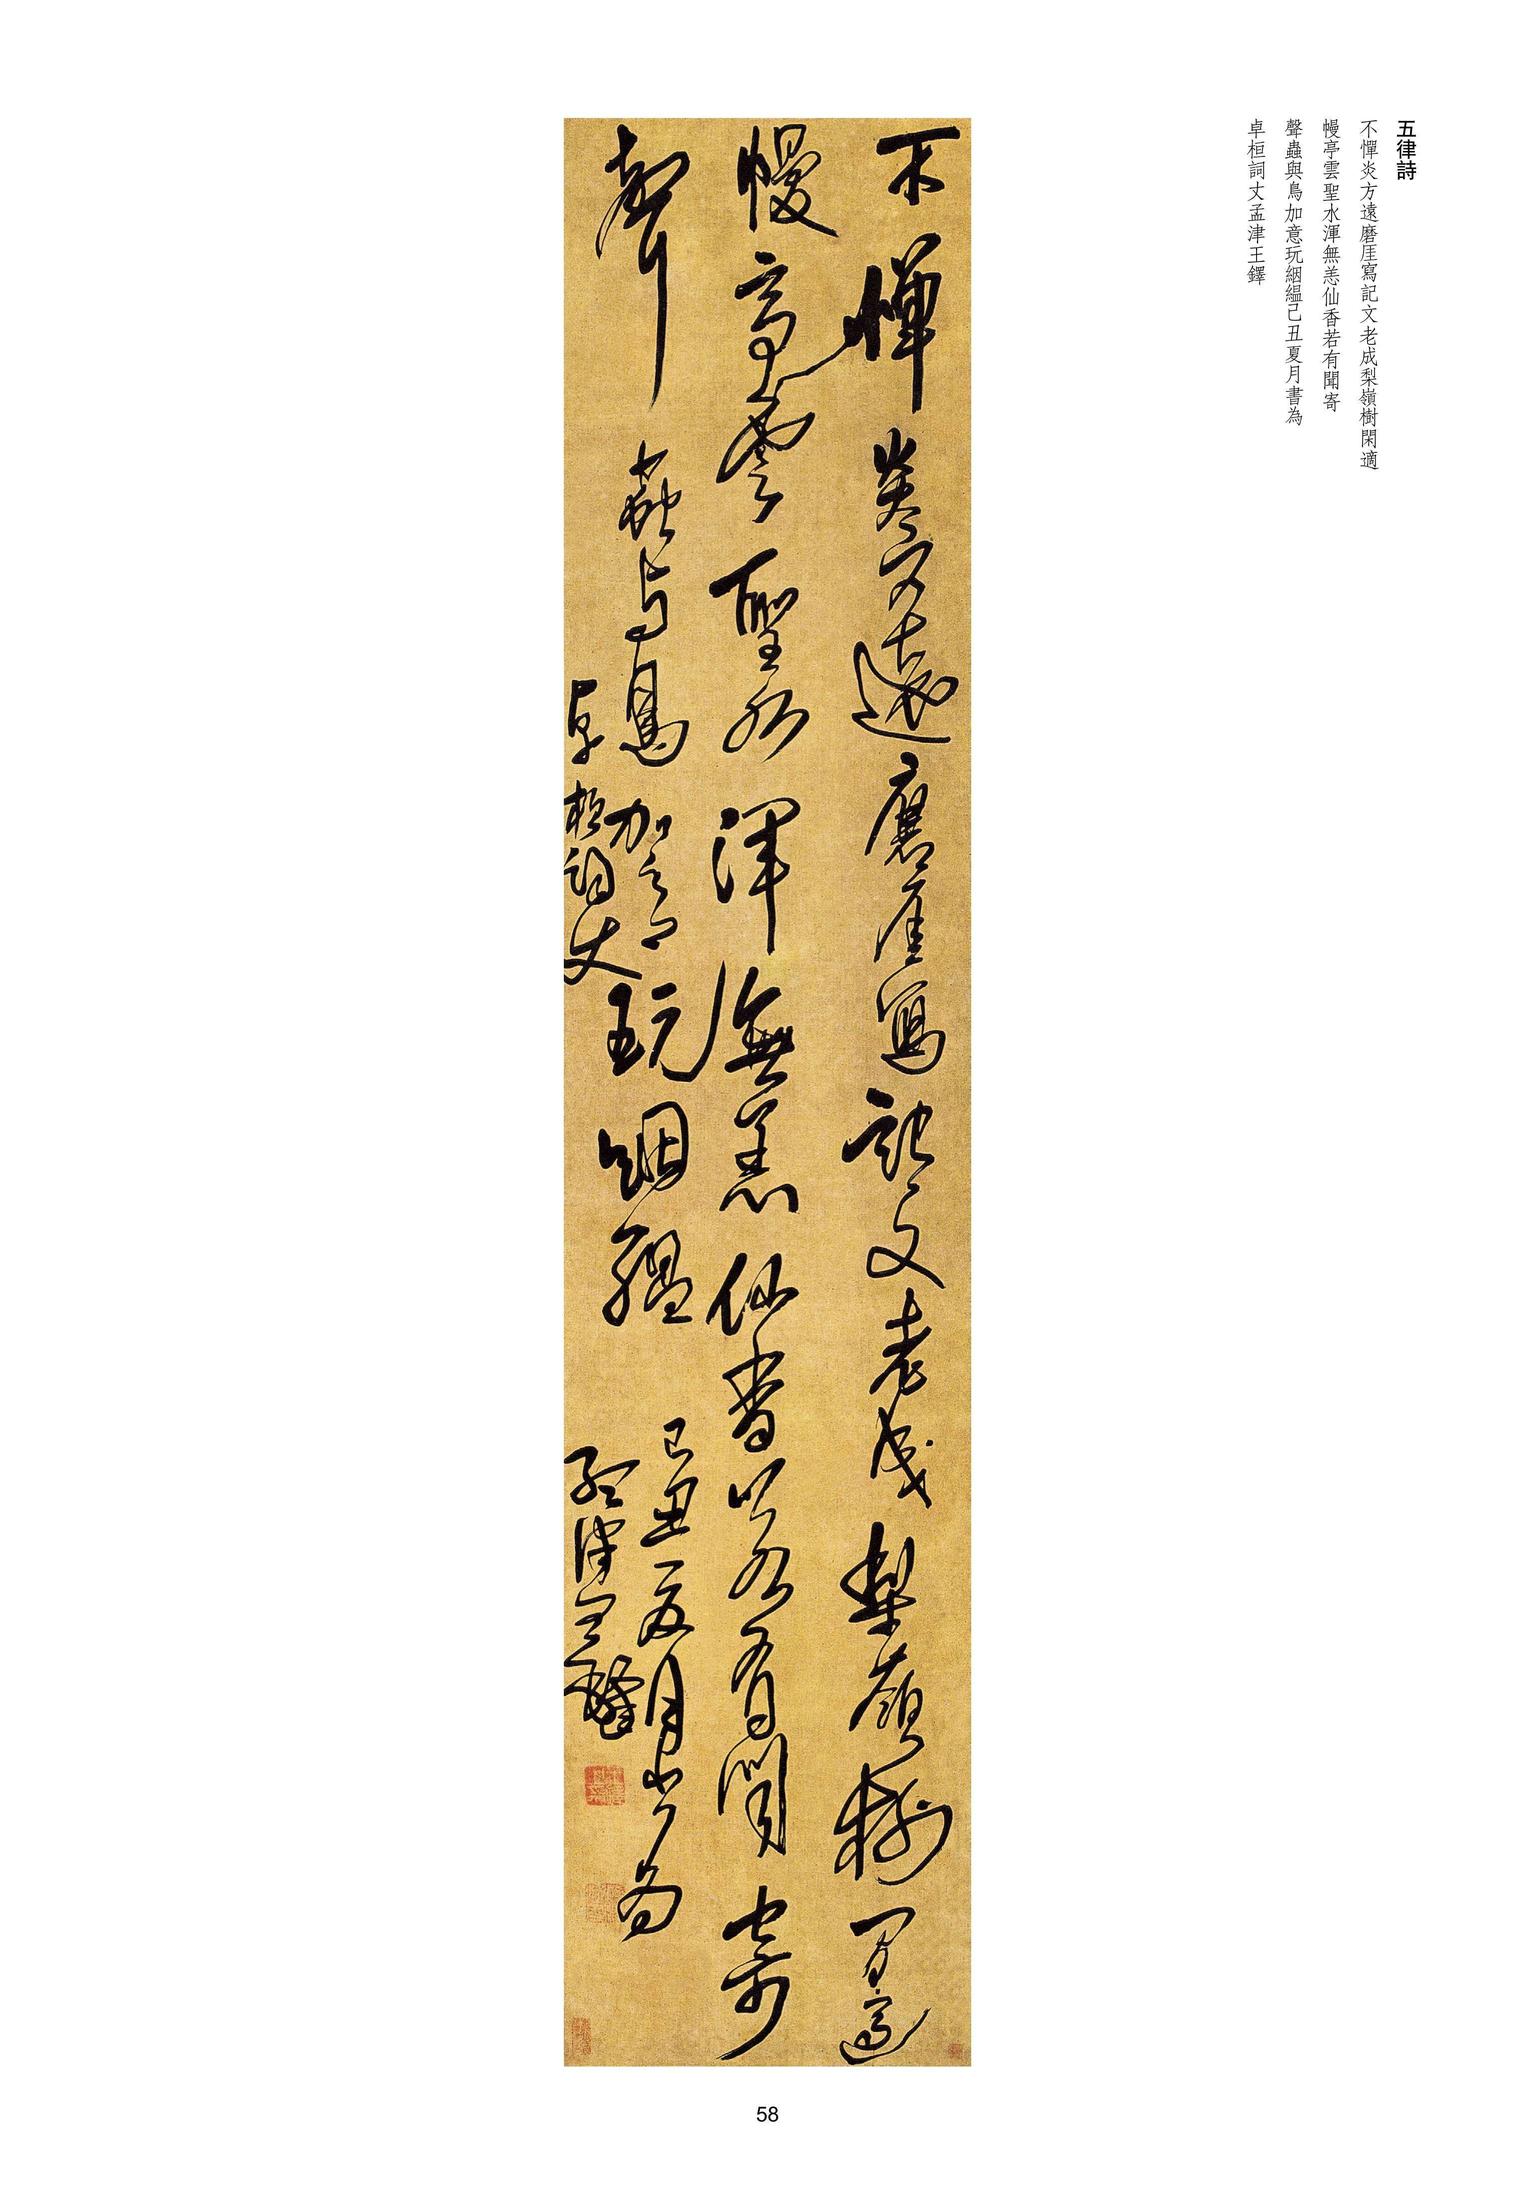 五律詩
不憚炎方遠磨厓寫記文老成梨嶺樹閑適
幔亭雲聖水渾無恙仙香若有聞寄
聲蟲與鳥加意玩絪縕己丑夏月書為
卓桓詞丈孟津王鐸
不憚炎方遠磨厓寫記文老成梨嶺樹閒適
幔亭雲聖水渾無恙仙香若有聞寄
聲蟲与鳥加意玩絪縕己丑夏月書為
卓桓詞丈孟津王鐸
58